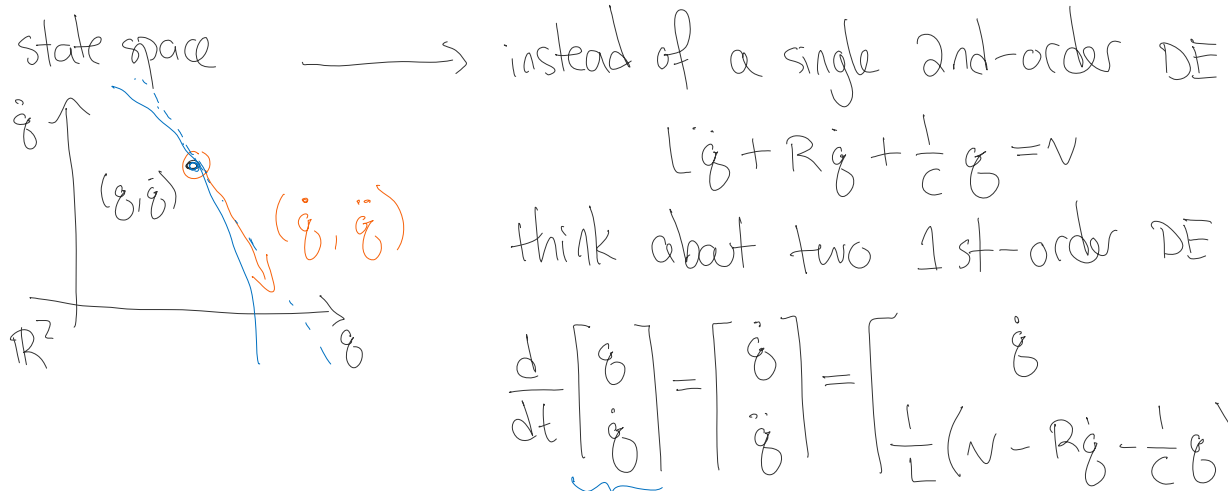 state space ⟶ instead of a single 2nd-order DE
q̇
(q, q̇)
(q̇, q̈)
ℝ²
q
Lq̈ + Rq̇ + 1/C q = v
think about two 1st-order DE
d/dt [q q̇] = [q̇ q̈] = [q̇ 1/L (v - Rq̇ - 1/C q)